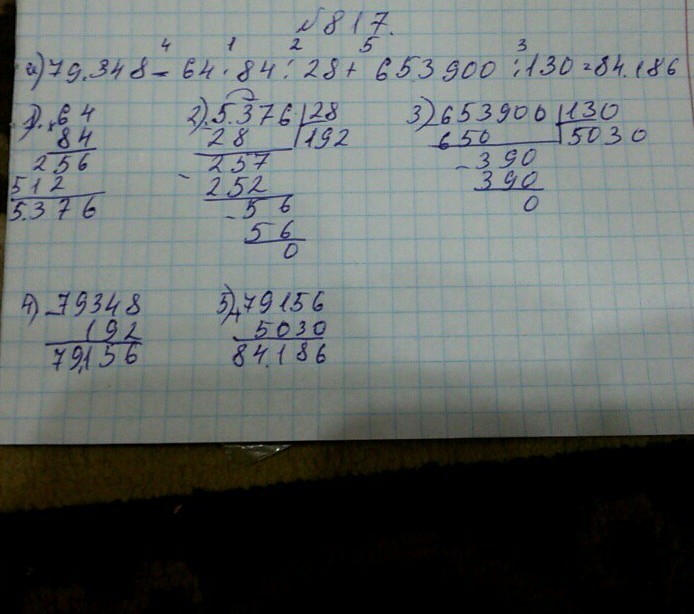 №817.
4 1 2 5 3
а) 79.348 - 64 · 84 : 28 + 653900 : 130 = 84.186
1) × 64
84
256
512
5.376
2) - 5.376 | 28
28 | 192
- 257
252
- 56
56
0
3) - 653900 | 130
650 | 5030
- 390
390
0
4) - 79348
192
79.156
5) + 79156
5030
84.186